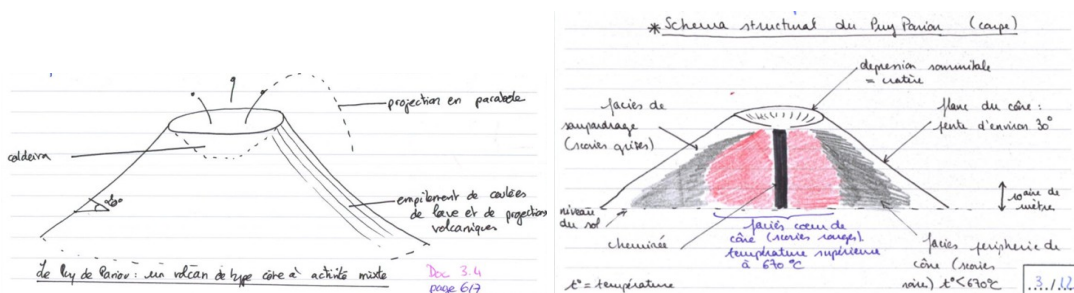 projection en parabole
caldeira
20°
empilement de coulées
de lave et de projections
volcaniques
Le Puy de Pariou : un volcan de type cône à activité mixte
Doc 3.4
page 6/7
* Schema structural du Puy Pariou (coupe)
depression sommitale
= cratère
faciès de
saupoudrage
(scories grises)
flanc du cône :
pente d'environ 30°
10aine de
mètre
niveau
du sol
cheminée
faciès coeur de
cône (scories rouges)
température supérieure
à 670 °C
faciès peripherie de
cône (scories
noire) t°<670°C
t° = température
3./12